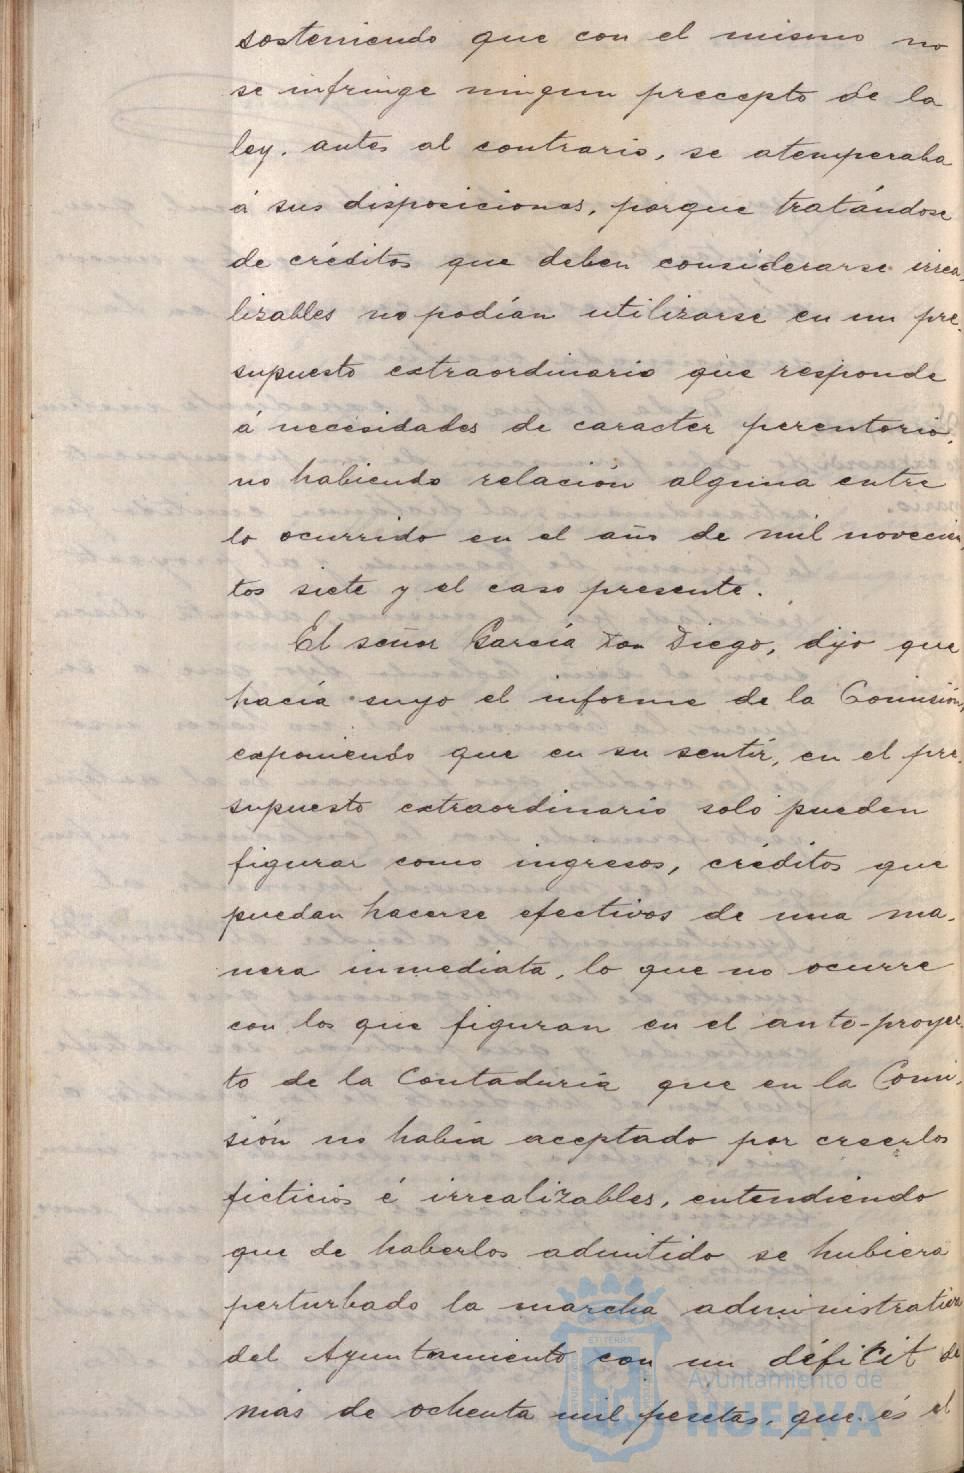 sosteniendo que con el mismo no
se infringe ningun precepto de la
ley. antes al contrario, se atemperaba
á sus disposiciones, porque tratándose
de créditos que deben considerarse irrea-
lizables no podían utilizarse en un pre-
supuesto extraordinario que responde
á necesidades de caracter perentorio,
no habiendo relación alguna entre
lo ocurrido en el año de mil novecien-
tos siete y el caso presente.
El señor García Don Diego, dijo que
hacía suyo el informe de la Comisión,
exponiendo que en su sentir, en el pre-
supuesto extraordinario solo pueden
figurar como ingresos, créditos que
puedan hacerse efectivos de una ma-
nera inmediata, lo que no ocurre
con los que figuran en el ante-proyec-
to de la Contaduría que en la Comi-
sión no había aceptado por creerlos
ficticios é irrealizables, entendiendo
que de haberlos admitido se hubiera
perturbado la marcha administrativa
del Ayuntamiento con un déficit de
más de ochenta mil pesetas, que és el
Ayuntamiento de
HUELVA